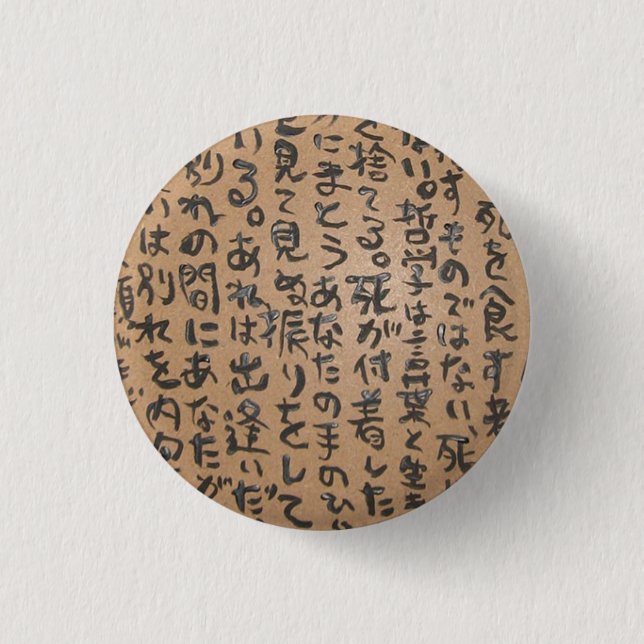 死を食す者
すものではない、死
い。哲学は言葉と生
捨てる。死が付着した
にまとうあなたの手のひ
見て見ぬ振りをして
る。あれは出逢いだ
別れの間にあなたが
いは別れを内